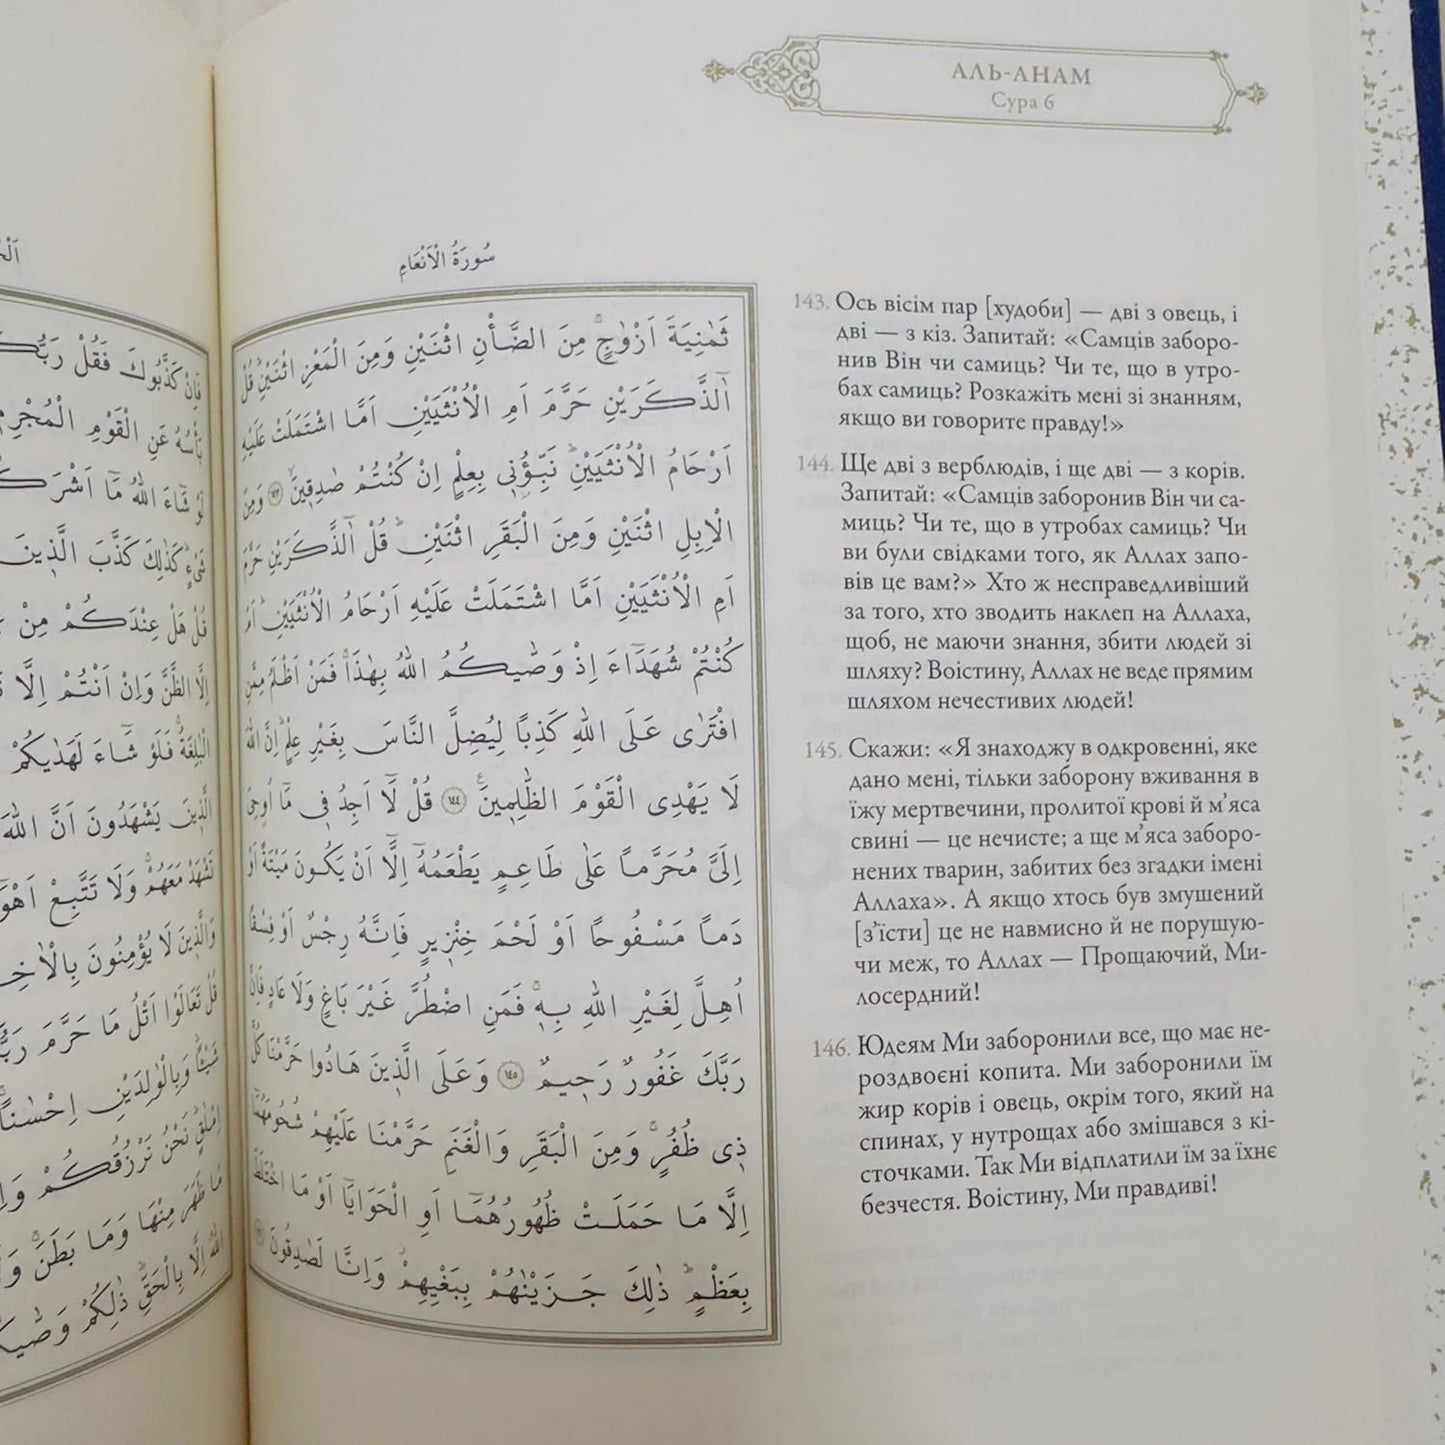 АЛЬ-АНАМ
Сура 6
سُورَةُ الْاَنْعَامِ
ثَمٰنِيَةَ اَزْوَاجٍۚ مِنَ الضَّأْنِ اثْنَيْنِ وَمِنَ الْمَعْزِ اثْنَيْنِۜ قُلْ
آٰلذَّكَرَيْنِ حَرَّمَ اَمِ الْاُنْثَيَيْنِ اَمَّا اشْتَمَلَتْ عَلَيْهِ
اَرْحَامُ الْاُنْثَيَيْنِۜ نَبِّؤُ۫ن۪ي بِعِلْمٍ اِنْ كُنْتُمْ صَادِق۪ينَۙ ﴿١٤٣﴾ وَمِنَ
الْاِبِلِ اثْنَيْنِ وَمِنَ الْبَقَرِ اثْنَيْنِۜ قُلْ آٰلذَّكَرَيْنِ حَرَّمَ
اَمِ الْاُنْثَيَيْنِ اَمَّا اشْتَمَلَتْ عَلَيْهِ اَرْحَامُ الْاُنْثَيَيْنِۜ اَمْ
كُنْتُمْ شُهَدَٓاءَ اِذْ وَصّٰيكُمُ اللّٰهُ بِهٰذَاۚ فَمَنْ اَظْلَمُ مِمَّنِ
افْتَرٰى عَلَى اللّٰهِ كَذِبًا لِيُضِلَّ النَّاسَ بِغَيْرِ عِلْمٍۜ اِنَّ اللّٰهَ
لَا يَهْدِى الْقَوْمَ الظَّالِم۪ينَ۟ ﴿١٤٤﴾ قُلْ لَٓا اَجِدُ ف۪ي مَٓا اُوحِيَ
اِلَيَّ مُحَرَّمًا عَلٰى طَاعِمٍ يَطْعَمُهُٓ اِلَّٓا اَنْ يَكُونَ مَيْتَةً اَوْ
دَمًا مَسْفُوحًا اَوْ لَحْمَ خِنْز۪يرٍ فَاِنَّهُ رِجْسٌ اَوْ فِسْقًا
اُهِلَّ لِغَيْرِ اللّٰهِ بِه۪ۚ فَمَنِ اضْطُرَّ غَيْرَ بَاغٍ وَلَا عَادٍ فَاِنَّ
رَبَّكَ غَفُورٌ رَح۪يمٌ ﴿١٤٥﴾ وَعَلَى الَّذ۪ينَ هَادُوا حَرَّمْنَا كُلَّ
ذ۪ي ظُفُرٍۚ وَمِنَ الْبَقَرِ وَالْغَنَمِ حَرَّمْنَا عَلَيْهِمْ شُحُومَهُمَٓا
اِلَّا مَا حَمَلَتْ ظُهُورُهُمَٓا اَوِ الْحَوَايَٓا اَوْ مَا اخْتَلَطَ
بِعَظْمٍۜ ذٰلِكَ جَزَيْنَاهُمْ بِبَغْيِهِمْۘ وَاِنَّا لَصَادِقُونَ
143. Ось вісім пар [худоби] — дві з овець, і
дві — з кіз. Запитай: «Самців заборо-
нив Він чи самиць? Чи те, що в утро-
бах самиць? Розкажіть мені зі знанням,
якщо ви говорите правду!»
144. Ще дві з верблюдів, і ще дві — з корів.
Запитай: «Самців заборонив Він чи са-
миць? Чи те, що в утробах самиць? Чи
ви були свідками того, як Аллах запо-
вів це вам?» Хто ж несправедливіший
за того, хто зводить наклеп на Аллаха,
щоб, не маючи знання, збити людей зі
шляху? Воістину, Аллах не веде прямим
шляхом нечестивих людей!
145. Скажи: «Я знаходжу в одкровенні, яке
дано мені, тільки заборону вживання в
їжу мертвечини, пролитої крові й м’яса
свині — це нечисте; а ще м’яса заборо-
нених тварин, забитих без згадки імені
Аллаха». А якщо хтось був змушений
[з’їсти] це не навмисно й не порушую-
чи меж, то Аллах — Прощаючий, Ми-
лосердний!
146. Юдеям Ми заборонили все, що має не-
роздвоєні копита. Ми заборонили їм
жир корів і овець, окрім того, який на
спинах, у нутрощах або змішався з кі-
сточками. Так Ми відплатили їм за їхнє
безчестя. Воістину, Ми правдиві!
فَاِنْ كَذَّبُوكَ فَقُلْ
بَأْسُهُ عَنِ الْقَوْمِ
لَوْ شَٓاءَ اللّٰهُ مَٓا
شَيْءٍۜ كَذٰلِكَ كَذَّبَ الَّذ۪ينَ
قُلْ هَلْ عِنْدَكُمْ مِنْ
اِلَّا الظَّنَّ وَاِنْ اَنْتُمْ اِلَّا
الْبَالِغَةُۚ فَلَوْ شَٓاءَ لَهَدٰيكُمْ
الَّذ۪ينَ يَشْهَدُونَ اَنَّ اللّٰهَ
تَشْهَدْ مَعَهُمْۚ وَلَا تَتَّبِعْ
وَالَّذ۪ينَ لَا يُؤْمِنُونَ
قُلْ تَعَالَوْا اَتْلُ مَا حَرَّمَ
شَيْـًٔا وَبِالْوَالِدَيْنِ اِحْسَانًاۚ
اِمْلَاقٍۜ نَحْنُ نَرْزُقُكُمْ
مَا ظَهَرَ مِنْهَا وَمَا بَطَنَۚ
اللّٰهُ اِلَّا بِالْحَقِّۜ ذٰلِكُمْ